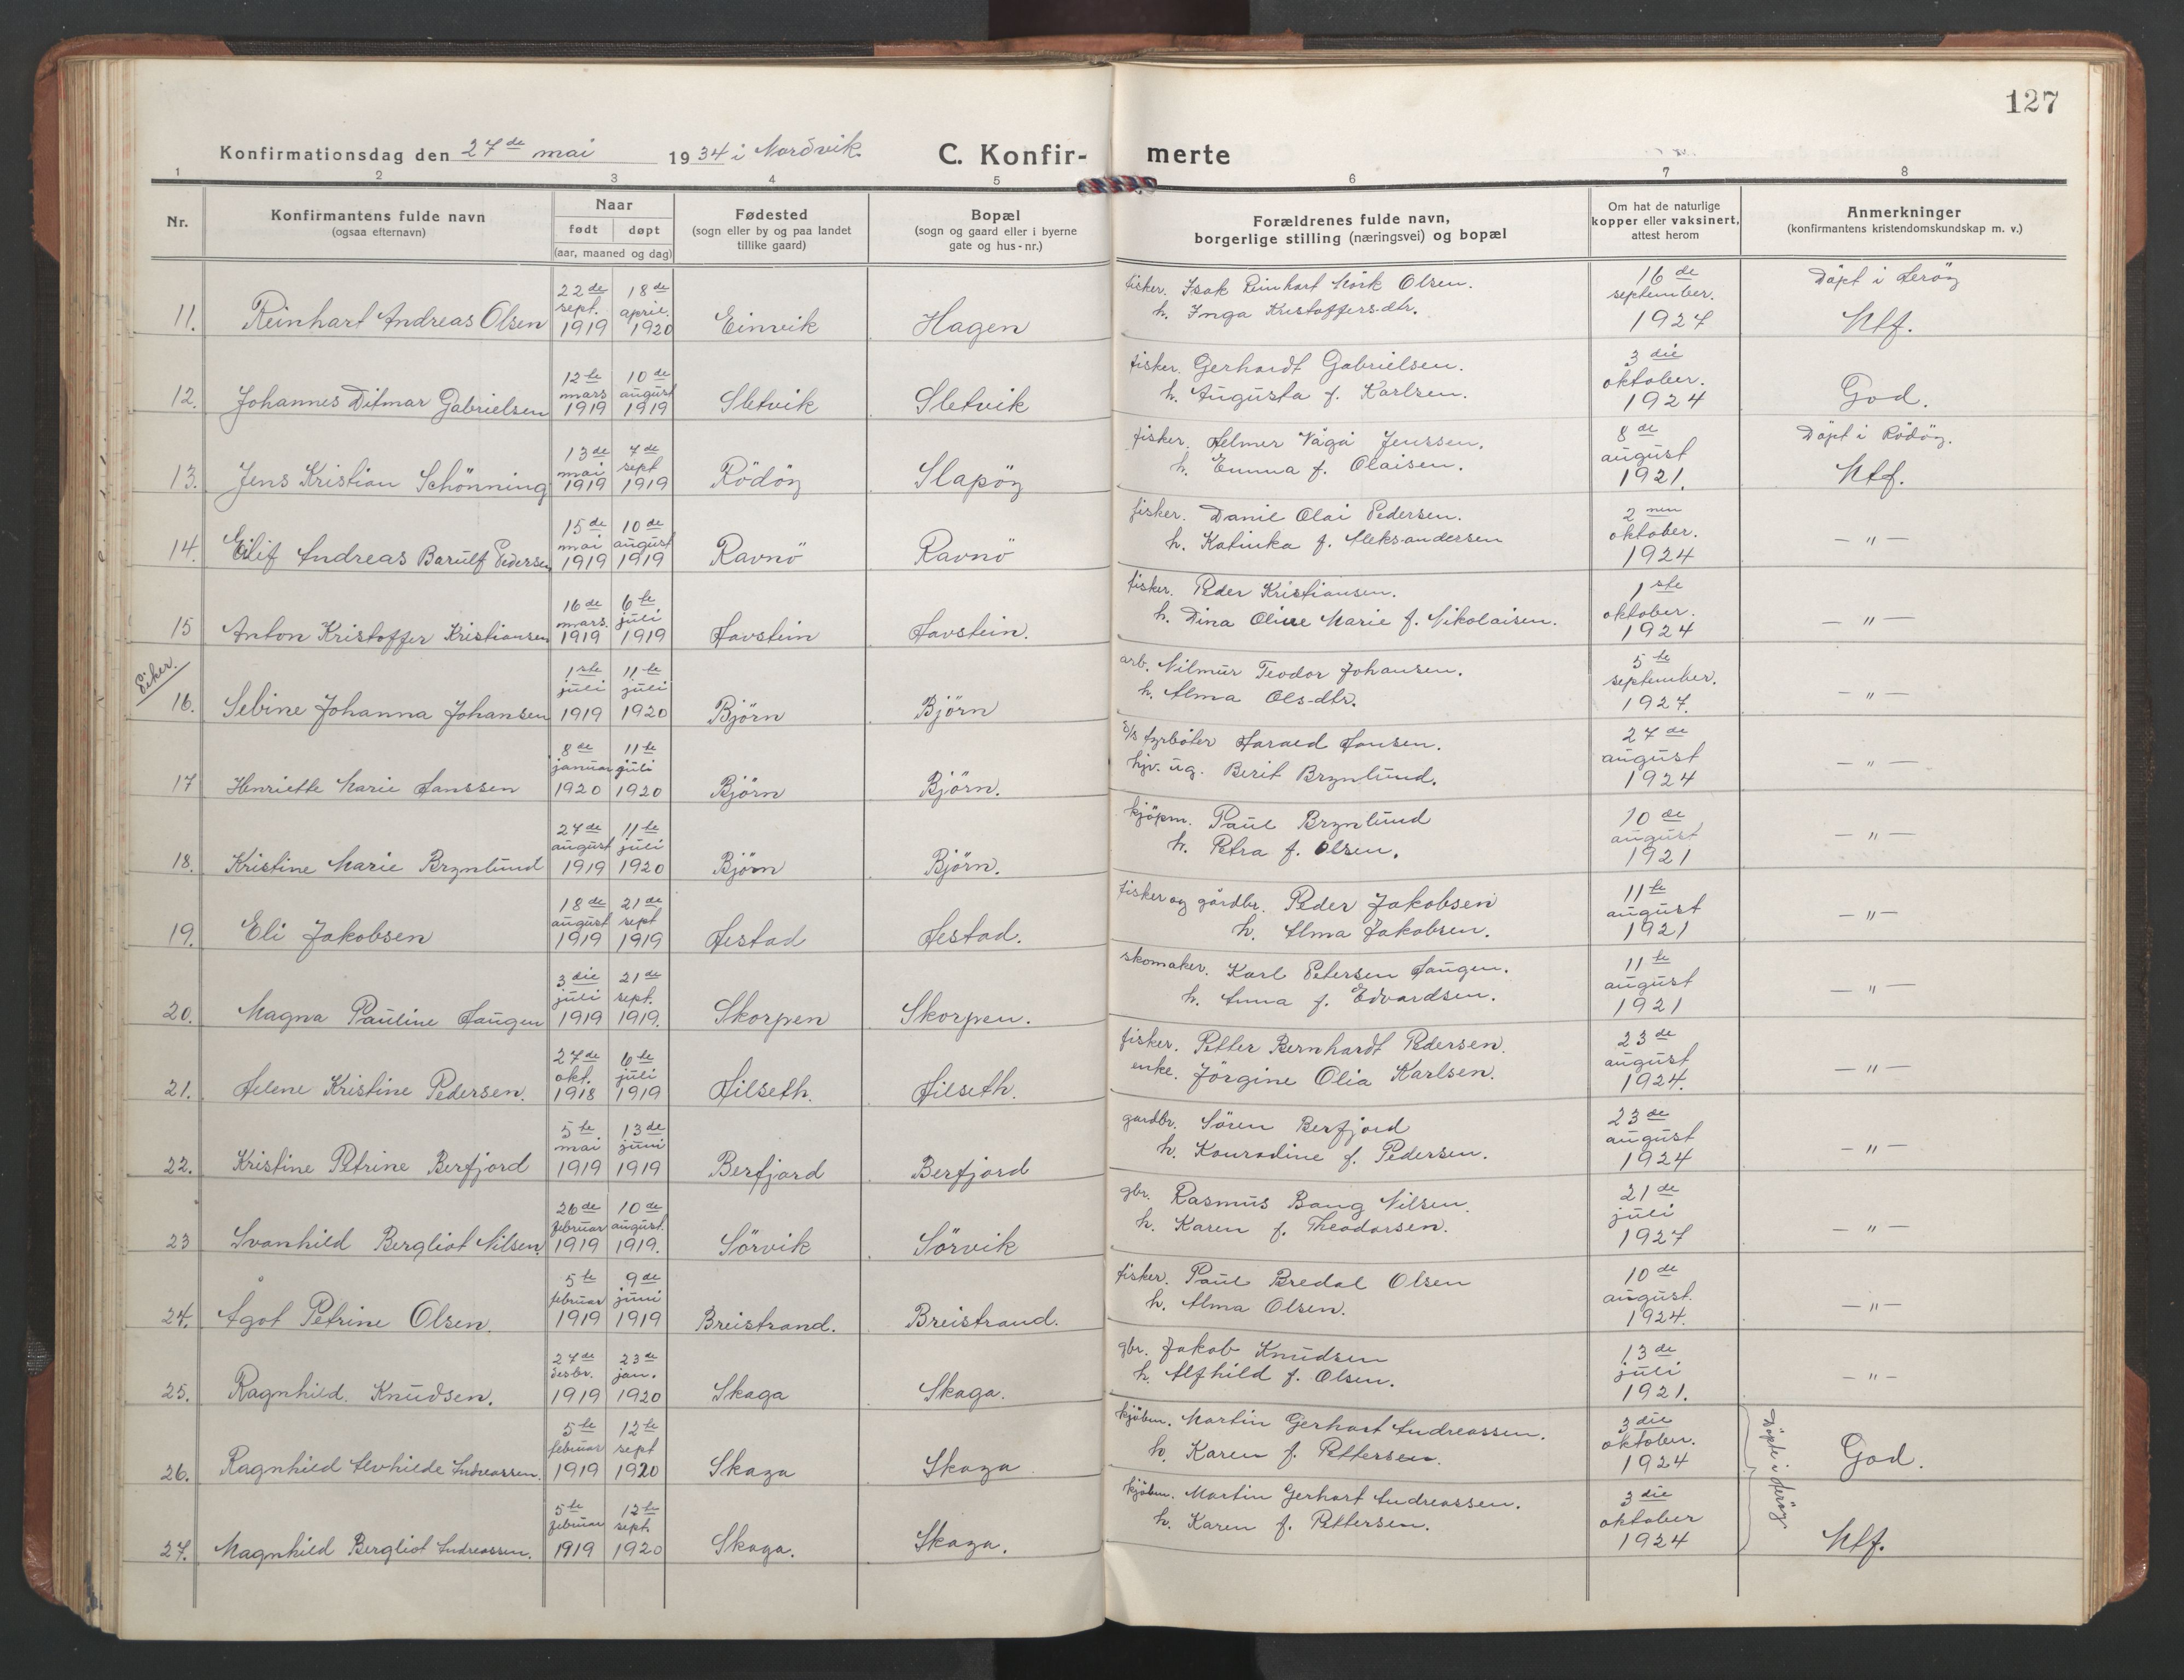 127
Konfirmationsdag den 27de mai 1934 i Nordvik. C. Konfir- merte
1 2 3 4 5 6 7 8
Nr.
Konfirmantens fulde navn
(ogsaa efternavn)
Naar
født døpt
(aar, maaned og dag)
Fødested
(sogn eller by og paa landet
tillike gaard)
Bopæl
(sogn og gaard eller i byerne
gate og hus-nr.)
Forældrenes fulde navn,
borgerlige stilling (næringsvei) og bopæl
Om hat de naturlige
kopper eller vaksinert,
attest herom
Anmerkninger
(konfirmantens kristendomskundskap m. v.)
11. Reinhart Andreas Olsen 22de sept. 1919 18de april. 1920 Einvik Hagen
fisker. Isak Reinhart Mörk Olsen.
h. Inga Kristoffers-dtr.
16de september. 1927
Döpt i Heröy
Mtf.
12. Johannes Ditmar Gabrielsen 12te mars 1919 10de august 1919 Sletvik Sletvik
fisker. Gerhardt Gabrielsen.
h. Augusta f. Karlsen.
3die oktober. 1924
God.
13. Jens Kristian Schönning 13de mai 1919 7de sept 1919 Rödöy Slapöy
fisker. Helmer Vågå Jenssen.
h. Emma f. Olaisen.
8de august 1921.
Döpt i Rödöy.
Mtf.
14. Eilif Andreas Barulf Pedersen 15de mai 1919 10de august 1919 Ravnö Ravnö
fisker. Danil Olai Pedersen.
h. Katinka f. Aleksandersen
2nen oktober. 1924
— " —
15 Anton Kristoffer Kristiansen 16de mars. 1919 6te juli 1919 Havstein Havstein.
fisker. Peder Kristiansen.
h. Dina Oline Marie f. Nikolaisen.
1ste oktober. 1924
— " —
16. Sebine Johanna Johansen 1ste juli 1919 11te juli 1920 Björn Björn
arb. Nilmur Teodor Johansen.
h. Alma Ols-dtr.
5te september. 1927.
— " —
17 Henriette Marie Hanssen 8de januar 1920 11te juli 1920 Björn Björn.
s/s fyrböter Harald Hansen.
hjv. ug. Berit Brynlund.
27de august 1924
— " —
18. Kristine Marie Brynlund 27de august 1919 11te juli 1920 Björn Björn.
kjöpm. Paul Brynlund
h. Petra f. Olsen.
10de august 1921
— " —
19. Eli Jakobsen 18de august 1919 21de sept 1919 Hestad Hestad.
fisker og gårdbr. Peder Jakobsen
h. Alma Jakobsen.
11te august 1921
— " —
20. Magna Pauline Haugen 3die juli 1919 21de sept. 1919. Skorpen Skorpen.
skomaker. Karl Petersen Haugen.
h. Anna f. Edvardsen.
11te august 1921
— " —
21. Helene Kristine Pedersen. 27de okt. 1918 6te juli 1919 Hilseth. Hilseth.
fisker. Petter Bernhardt Pedersen.
enke. Jörgine Olia Karlsen.
23de august 1924.
— " —
22. Kristine Petrine Berfjord 5te mai 1919 13de juni 1919 Berfjord Berfjord
gardbr. Sören Berfjord
h. Konradine f. Pedersen.
23de august 1924
— " —
23 Svanhild Bergliot Nilsen. 26de februar 1919 10de august. 1919. Sörvik Sörvik
gbr. Rasmus Bang Nilsen.
h. Karen f. Theodorsen.
21de juli 1927
— " —
24. Ågot Petrine Olsen. 5te februar 1919 9de juni 1919 Breistrand. Breistrand.
fisker. Paul Bredal Olsen
h. Alma Olsen.
10de august. 1924.
— " —
25. Ragnhild. Knudsen. 27de desbr. 1919 23de jan. 1920 Skaga Skaga.
gbr. Jakob Knudsen
h. Alfhild f. Olsen.
13de juli 1921.
— " —
26. Ragnhild Alvhilde Andreassen. 5te februar 1919 12te sept 1920 Skaga Skaga
kjöbm. Martin Gerhart Andreassen.
h. Karen f. Pettersen.
3die oktober. 1924
Döpte i Heröy
God.
27. Magnhild Bergliot Andreassen. 5te februar 1919 12te sept. 1920 Skaga. Skaga.
kjöbm. Martin Gerhart Andreassen.
h. Karen f. Pettersen.
3die oktober 1924
Mtf.